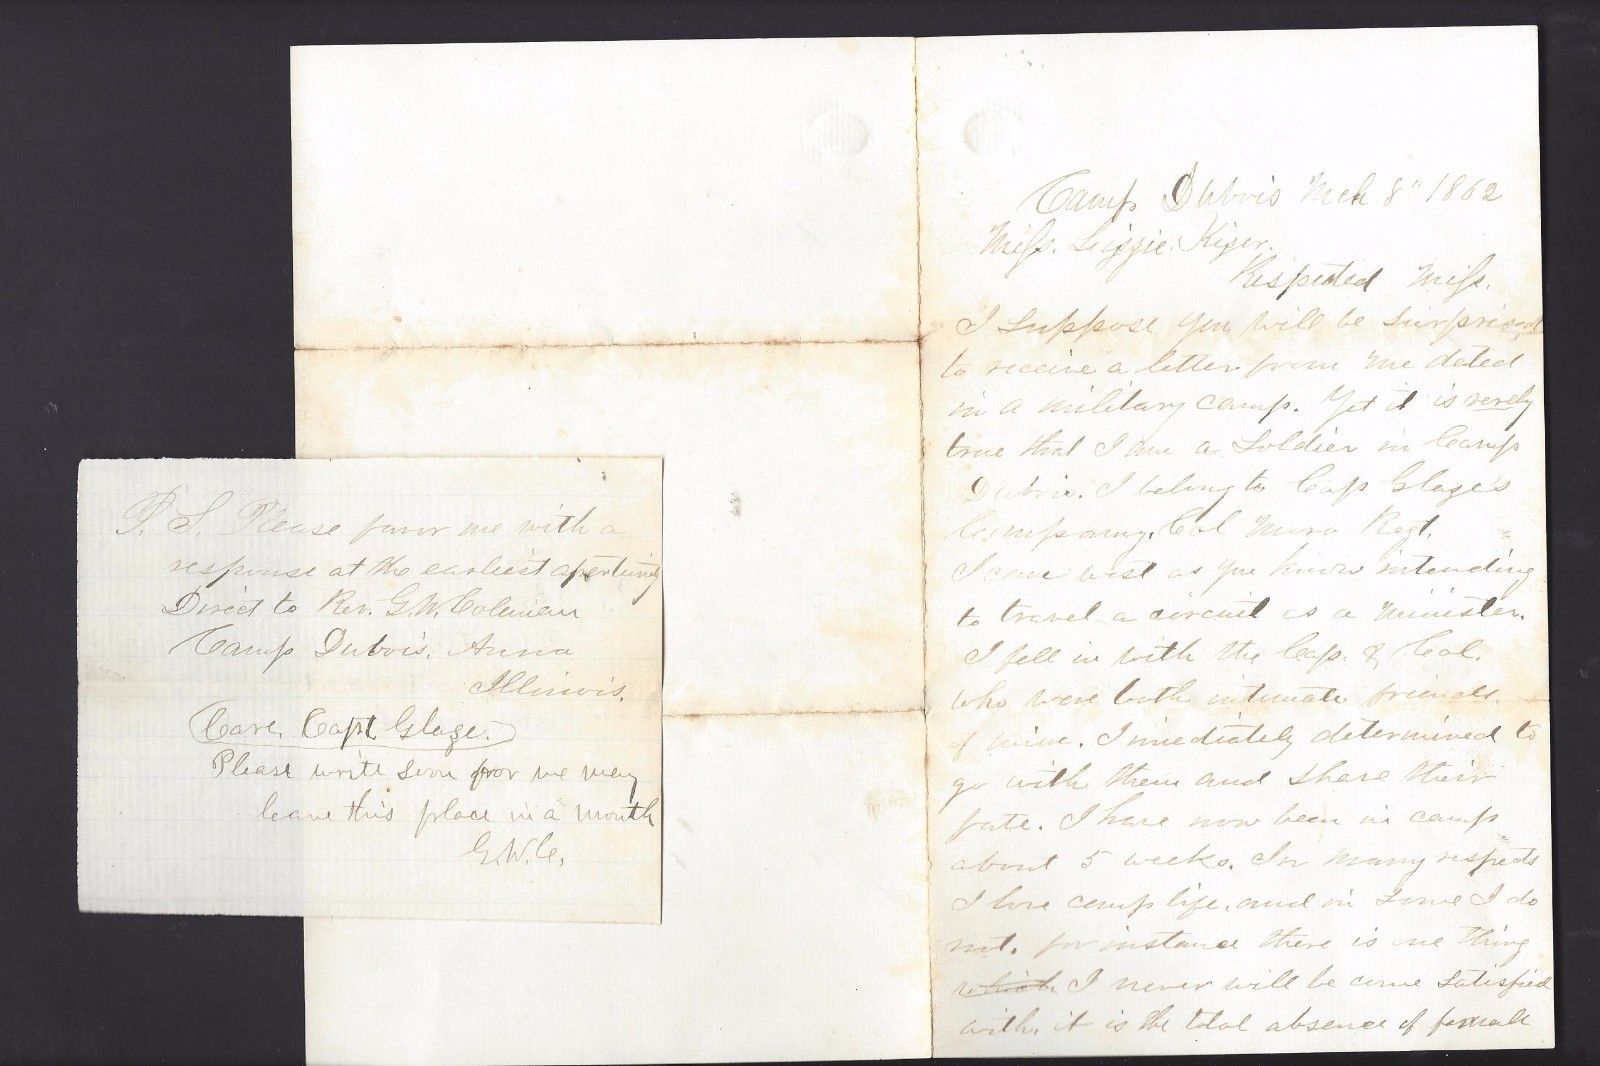 P. S. Please favor me with a
response at the earliest apertunity
Direct to Rev. G. W. Coleman
Camp Dubois. Anna
Illinois.
Care, Capt Glaze.
Please write soon for we may
leave this place in a month
G. W. C.
Camp Dubois Mch 8" 1862
Miss. Lizzie. Kiser.
Respected Miss.
I suppose you will be surprised
to receive a letter from me dated
in a military camp. Yet it is verely
true that I am a Soldier in Camp
Dubois. I belong to Cap Glaze's
Company. Col Regt.
I came west as you know intending
to travel a circuit as a minister.
I fell in with the Cap. & Col.
who were both intimate friends
of mine. I imediately determined to
go with them and share their
fate. I have now been in camp
about 5 weeks. In many respects
I love camp life, and in some I do
not. for instance there is one thing
which I never will be come satisfied
with. it is the total absence of female